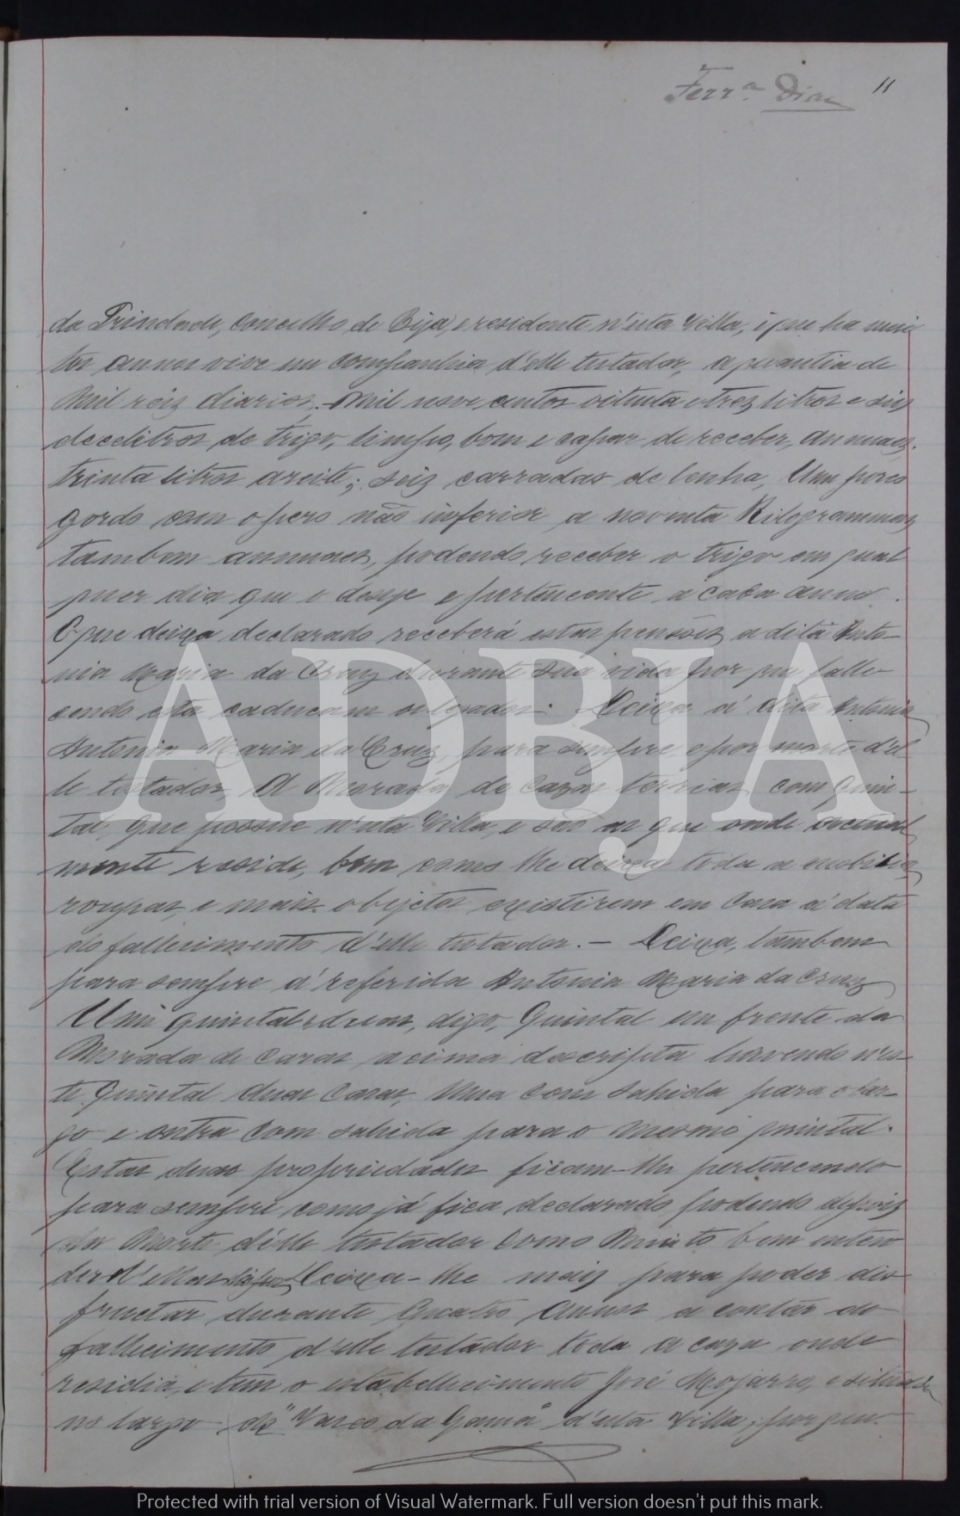 Ferr.ª Dias 11
da Trindade, concelho de Beja, e residente n'esta Villa, e que ha mui
tos annos vive em companhia d'elle testador, a quantia de
mil reis diarios. Mil nove centos oitenta e trez litros e seis
decelitros de trigo, limpo, bom e capaz de receber, annuaes.
trinta litros azeite; seis carradas de lenha, Um porco
gordo com o pezo não inferior a noventa Kilogrammas
tambem annuaes, podendo receber o trigo em qual
quer dia que o deseje e pertencente a cada anno.
O que deixa declarado receberá estas pensões a dita Anto-
nia Maria da Cruz durante sua vida por que falle-
cendo esta caducam os legados. Deixa á dita Antonia
Antonia Maria da Cruz, para sempre e por morte d'el-
le testador, A Morada de cazas terrias com quin-
tal, que possue n'esta Villa, e são as que onde actual
mente reside, bem como lhe deixa toda a mobilia,
roupas, e mais objectos existirem em Casa á data
do fallecimento d'elle testador. — Deixa, tambem
para sempre á referida Antonia Maria da Cruz
Um quintal e duas, digo, Quintal em frente da
Morada de casas acima descripta havendo n'es-
te Quintal duas casas, uma com sahida para o lar-
go e outra com sahida para o mesmo quintal.
Estas duas propriedades ficam-lhe pertencendo
para sempre como já fica declarado podendo depois
da Morte d'elle testador como Muito bem enten
der d'ellas dispor. Deixa-lhe mais para poder dis
fructar durante quatro annos a contar do
fallecimento d'elle testador toda a caza onde
residia, e tem o estabellecimento José Mojarro, e situada
no largo de "Vasco da Gama" d'esta Villa; por que
ADBJA
Protected with trial version of Visual Watermark. Full version doesn't put this mark.